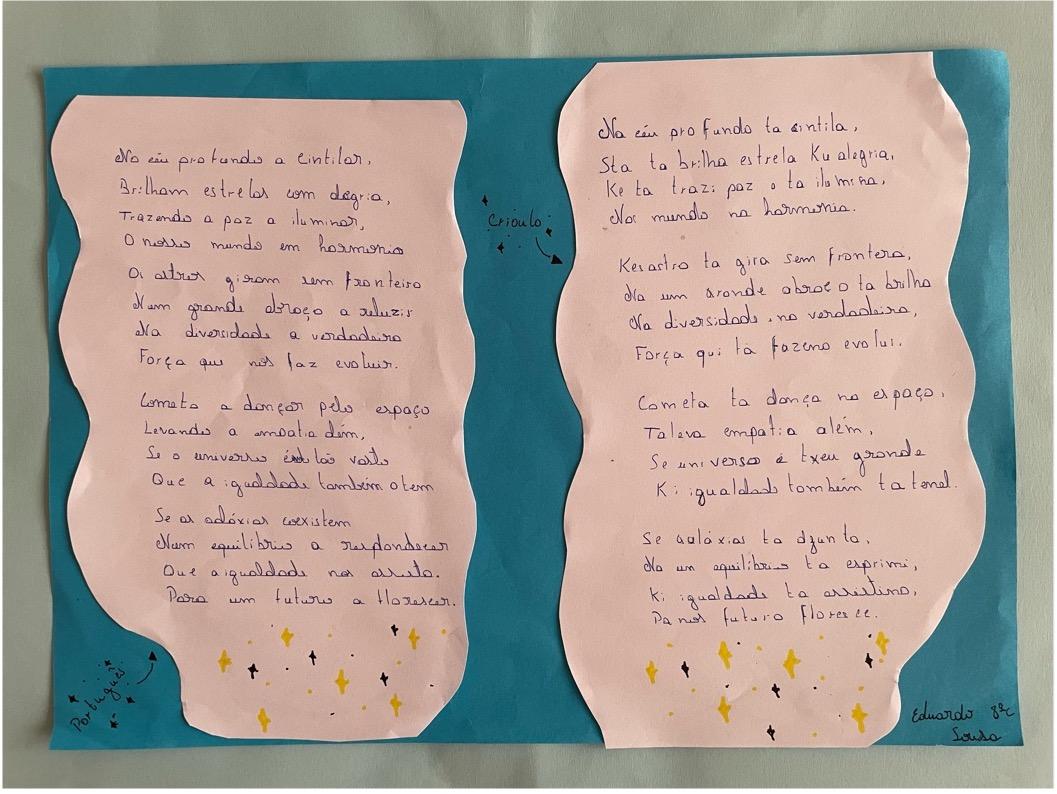 No céu profundo a cintilar,
Brilham estrelas com alegria,
Trazendo a paz a iluminar,
O nosso mundo em harmonia
Os astros giram sem fronteira
Num grande abraço a reluzir
Na diversidade a verdadeira
Força que nos faz evoluir.
Cometa a dançar pelo espaço
Levando a empatia além,
Se o universo é tão vasto
Que a igualdade também o tem
Se as galáxias coexistem
Num equilíbrio a
Que a igualdade nos assista.
Para um futuro a florescer.
Português
Crioulo
Na céu profundo ta cintila,
Sta ta brilha estrela Ku alegria,
Ke ta trazi paz o ta ilumina,
Nos mundo na harmonia.
Kes astro ta gira sem frontera,
Na um grande abraço ta brilha
Na diversidade, na verdadeira,
Força qui ta fazeno evolui.
Cometa ta dança na espaço,
Ta leva empatia além,
Se universo é txeu grande
Ki igualdade também ta tenel.
Se galáxias ta djunta,
Na un equilíbrio ta esprimi,
Ki igualdade ta assistino,
Pa nos futuro floresce.
Eduardo 8ºC
Sousa